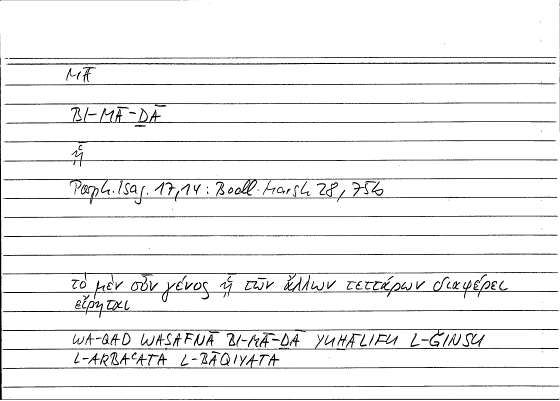 MĀ
BI-MĀ-ḎĀ
ᾗ
Porph. Isag. 17,14: Bodl. Marsh 28, 75b
τὸ μὲν οὖν γένος ᾗ τῶν ἄλλων τεττάρων διαφέρει
εἴρηται
WA-QAD WAṢAFNĀ BI-MĀ-ḎĀ YUḪĀLIFU L-ǦINSU
L-ARBAʿATA L-BĀQIYATA